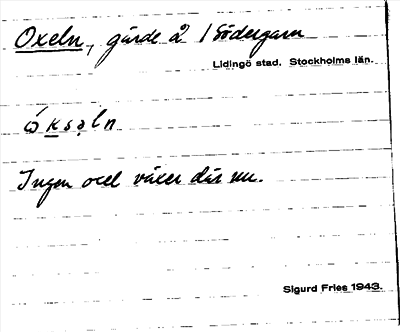 Oxeln, gärde å 1 Södergarn
Lidingö stad. Stockholms län.
ó̀ksəln
Ingen oxel växer där nu.
Sigurd Fries 1943.